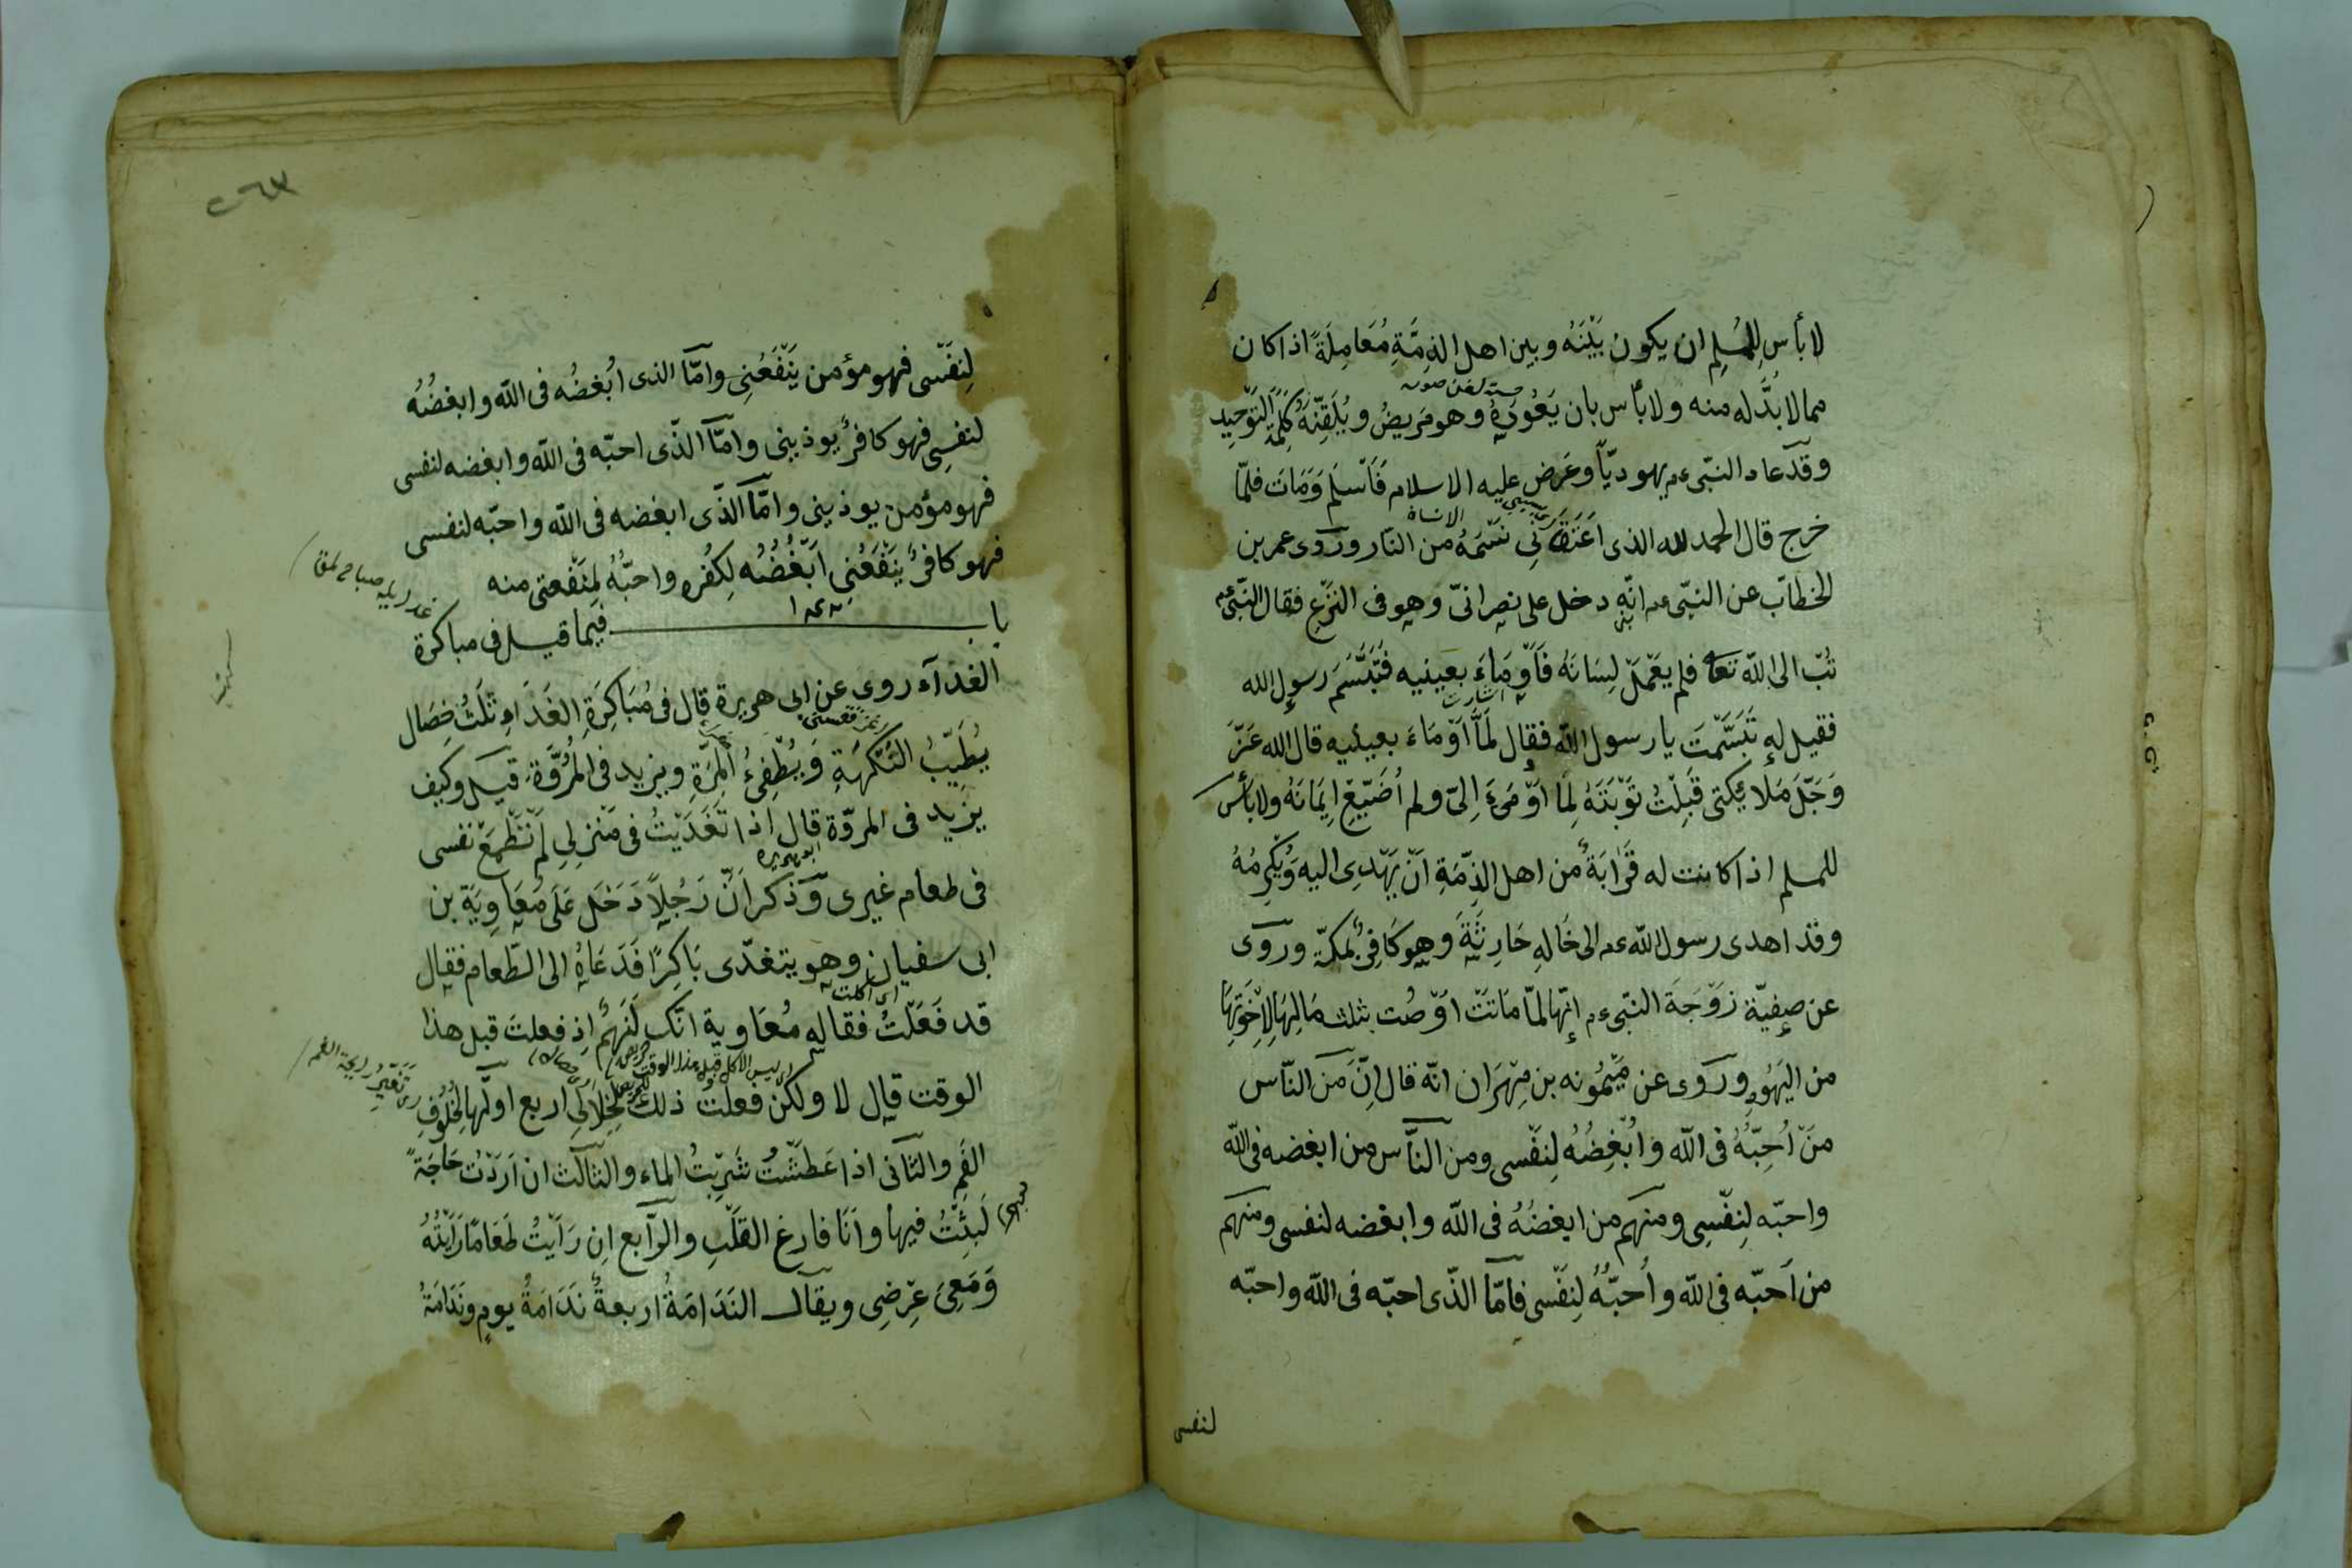 لا بأس لِلمُسلِمِ ان يكون بَيْنَهُ وبين اهل الذِمَّةِ مُعَامِلَةً اذا كان
مما لا بُدَّ له منه ولا بأس بان يَعُودَهُ وهو مَرِيضٌ ويُلَقِّنَهُ كَلِمَةَ التَوْحِيد
وقد عاد النبّى عم يهوديّاً وعَرَض عليه الاسلام فَاَسْلَم وَمَاتَ فلمّا
خرج قال الحمد لله الذى اَعتَقَ بِى نَسَمَةً من النّار وروى عمر بن
الخطاب عن النبّى عم انّه دخل على نصرانىّ وهو فى النَزْعِ فقال النبّى عم
تُبْ الى اللّه تعا فلم يَعْمَلْ لِسَانَهُ فَاَوْمَاءَ بعينيه فَتَبَسَّمَ رسول الله
فقيل له تَبَسَّمْتَ يا رسول اللّه فقال لَمَّا اَوْمَاءَ بعينيه قال الله عَزَّ
وَجَلَّ مَلائِكَتى قَبِلْتُ تَوْبَتَهُ لِمَا اَوْمَىءَ اِلىّ ولم اُضَيِّعْ اِيمَانَهُ ولا بَأْسَ
للمسلم اذا كانت له قَرَابَةٌ من اهل الذِّمَةِ اَنْ يَهْدِى اليه وَيُكْرِمُهُ
وقد اهدى رسول اللّه عم الى خَالِهِ حَارِثَةَ وَهو كَافِرٌ بمكة وروى
عن صفيّة زَوْجَةَ النبّى عم اِنّها لمّا مَاتَتْ اَوْصَت بثلث مَالِهَا لِاِخْوَتِهَا
من اليَهُودِ وروى عن مَيْمُونه بن مِهْرَان انّه قال اِنَّ مَن النّاس
مَنْ اُحِبُّهُ فى اللّه وَاُبْغِضُهُ لِنَفْسى ومن النَّاس من ابغضه فى اللّه
واحبّه لِنَفْسِى ومنهم من ابغضُهُ فى اللّه وابغضه لنفسى ومنهم
من اَحبّه فى اللّه واُحبُّهُ لِنَفْسى فامّا الذّى احبّه فى اللّه واحبّه
لنفسى
٢٦٣
لِنَفْسى فهو مؤمن يَنْفَعُنِى وامّا الذى ابُغضُه فى اللّه وابغضُهُ
لنفسِى فهو كافرٌ يوذينى وامّا الذّى احبّه فى اللّه وابغضه لنفسى
فهو مؤمن يوذينى وامَّا الذّى ابغضه فى اللّه واحبّه لنفسى
فهو كافرٌ يَنْفَعُنِى اَبْغُضُه لِكُفْره واحبُّهُ لِمَنْفَعتى منه
باب فيما قيل فى مباكرة
الغدَآء روى عن ابى هريرة قال فى مُبَاكِرَةِ الغَدَاءِ ثَلَثُ خِصَال
يُطَيِّبُ النَّكْهَةِ وَيُطْفِئُ المِرَّةِ ويزيد فى المُرُوَّةِ قيل وكيف
يزيد فى المروّة قال اذا تَغَدَّيْتُ فى مَنْزِلِى لم تَطْمَعْ نفسى
ابو هريره
فى طعام غيرى وَذكر اَنَّ رَجُلاً دَخَل عَلَى مُعَاوِيَة بن
ابى سفيان وهو يتغدّى بَاكِرًا فَدَعَاهُ الى الطّعام فقال
اى اكلت
قد فَعَلْتُ فقال له مُعَاوية انّك لَنَهِمٌ اِذ فعلت قبل هذا
الوقت قال لا ولكن فعلتُ ذلك لِخِلالٍ اربع اوّلُها لِخُلُوفِ
الفَمِ والثّانى اذا عَطَشْتُ شَرِبْتُ الماء والثالث ان اَرَدْتُ حَاجَةً
لَبِثْتُ فيها وَاَنَا فارغ القلْبِ والرّابع اِن رَاَيْتُ طَعَامًا رَاَيْتُهُ
وَمَعِىَ عِرْضِى ويقال النَدَامَةُ اربعةٌ نَدَامَةُ يومٍ ونَدَامَةُ